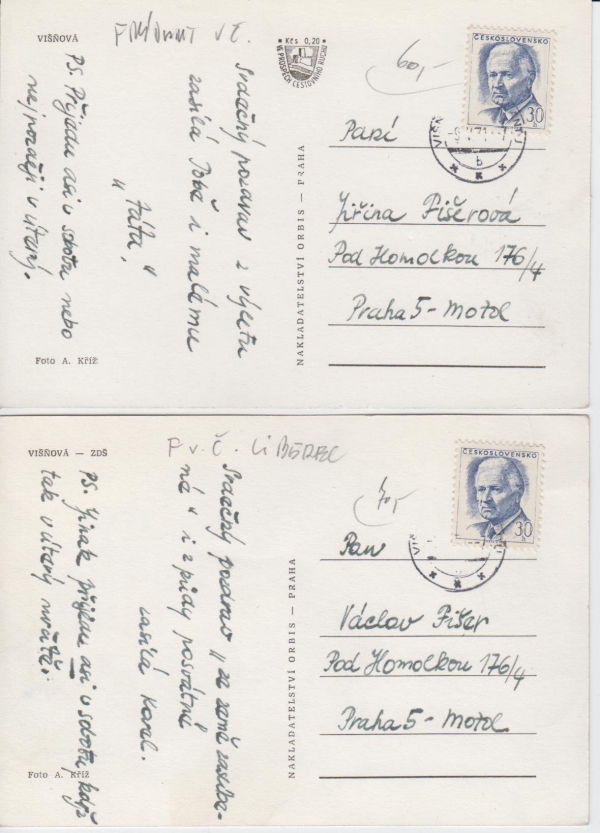 VIŠŇOVÁ
FRÝDLANT V Č.
Kčs 0,20
VE PROSPĚCH CESTOVNÍHO RUCHU
60,-
ČESKOSLOVENSKO
30 h
Srdečný pozdrav z výletu
zasílá Tobě i malému
"táta."
PS. Přijedu asi v sobotu nebo
nejpozději v úterý.
Foto A. Kříž
NAKLADATELSTVÍ ORBIS — PRAHA
b
Paní
Jiřina Fišerová
Pod Homolkou 176/4
Praha 5 - Motol
VIŠŇOVÁ — ZDŠ
F v. Č. LIBEREC
ČESKOSLOVENSKO
30 h
Srdečný pozdrav "ze země zaslíbe-
né" i z půdy posvátné
zasílá Karel.
PS. Jinak přijedu asi v sobotu, když
tak v úterý
Foto A. Kříž
NAKLADATELSTVÍ ORBIS — PRAHA
Pan
Václav Fišer
Pod Homolkou 176/4
Praha 5 - Motol